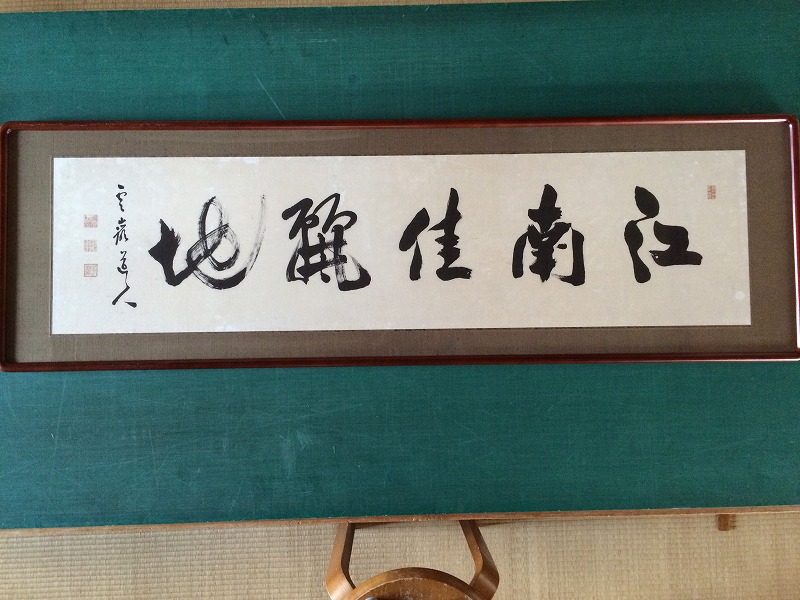 江南佳麗地
雲嶽道人